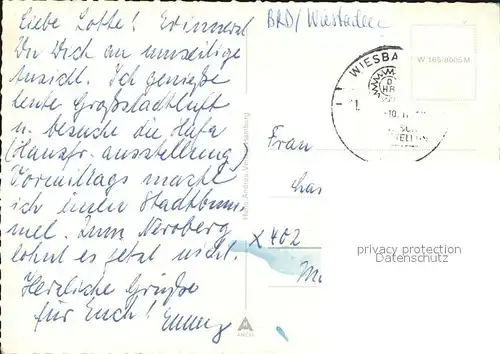 Liebe Lotte! Erinnerst
Du Dich an umseitige
Ansicht. Ich genieße
heute Großstadtluft
u. besuche die Hafa
(Hausfr.-ausstellung)
Vormittags macht
ich einen Stadtbum-
mel. Zum Neroberg
lohnt es jetzt nicht.
Herzliche Grüße
für Euch!
BRD/Wiesbaden
W 165/9005 M
WIESBA
Frau
X 402
privacy protection
Datenschutz